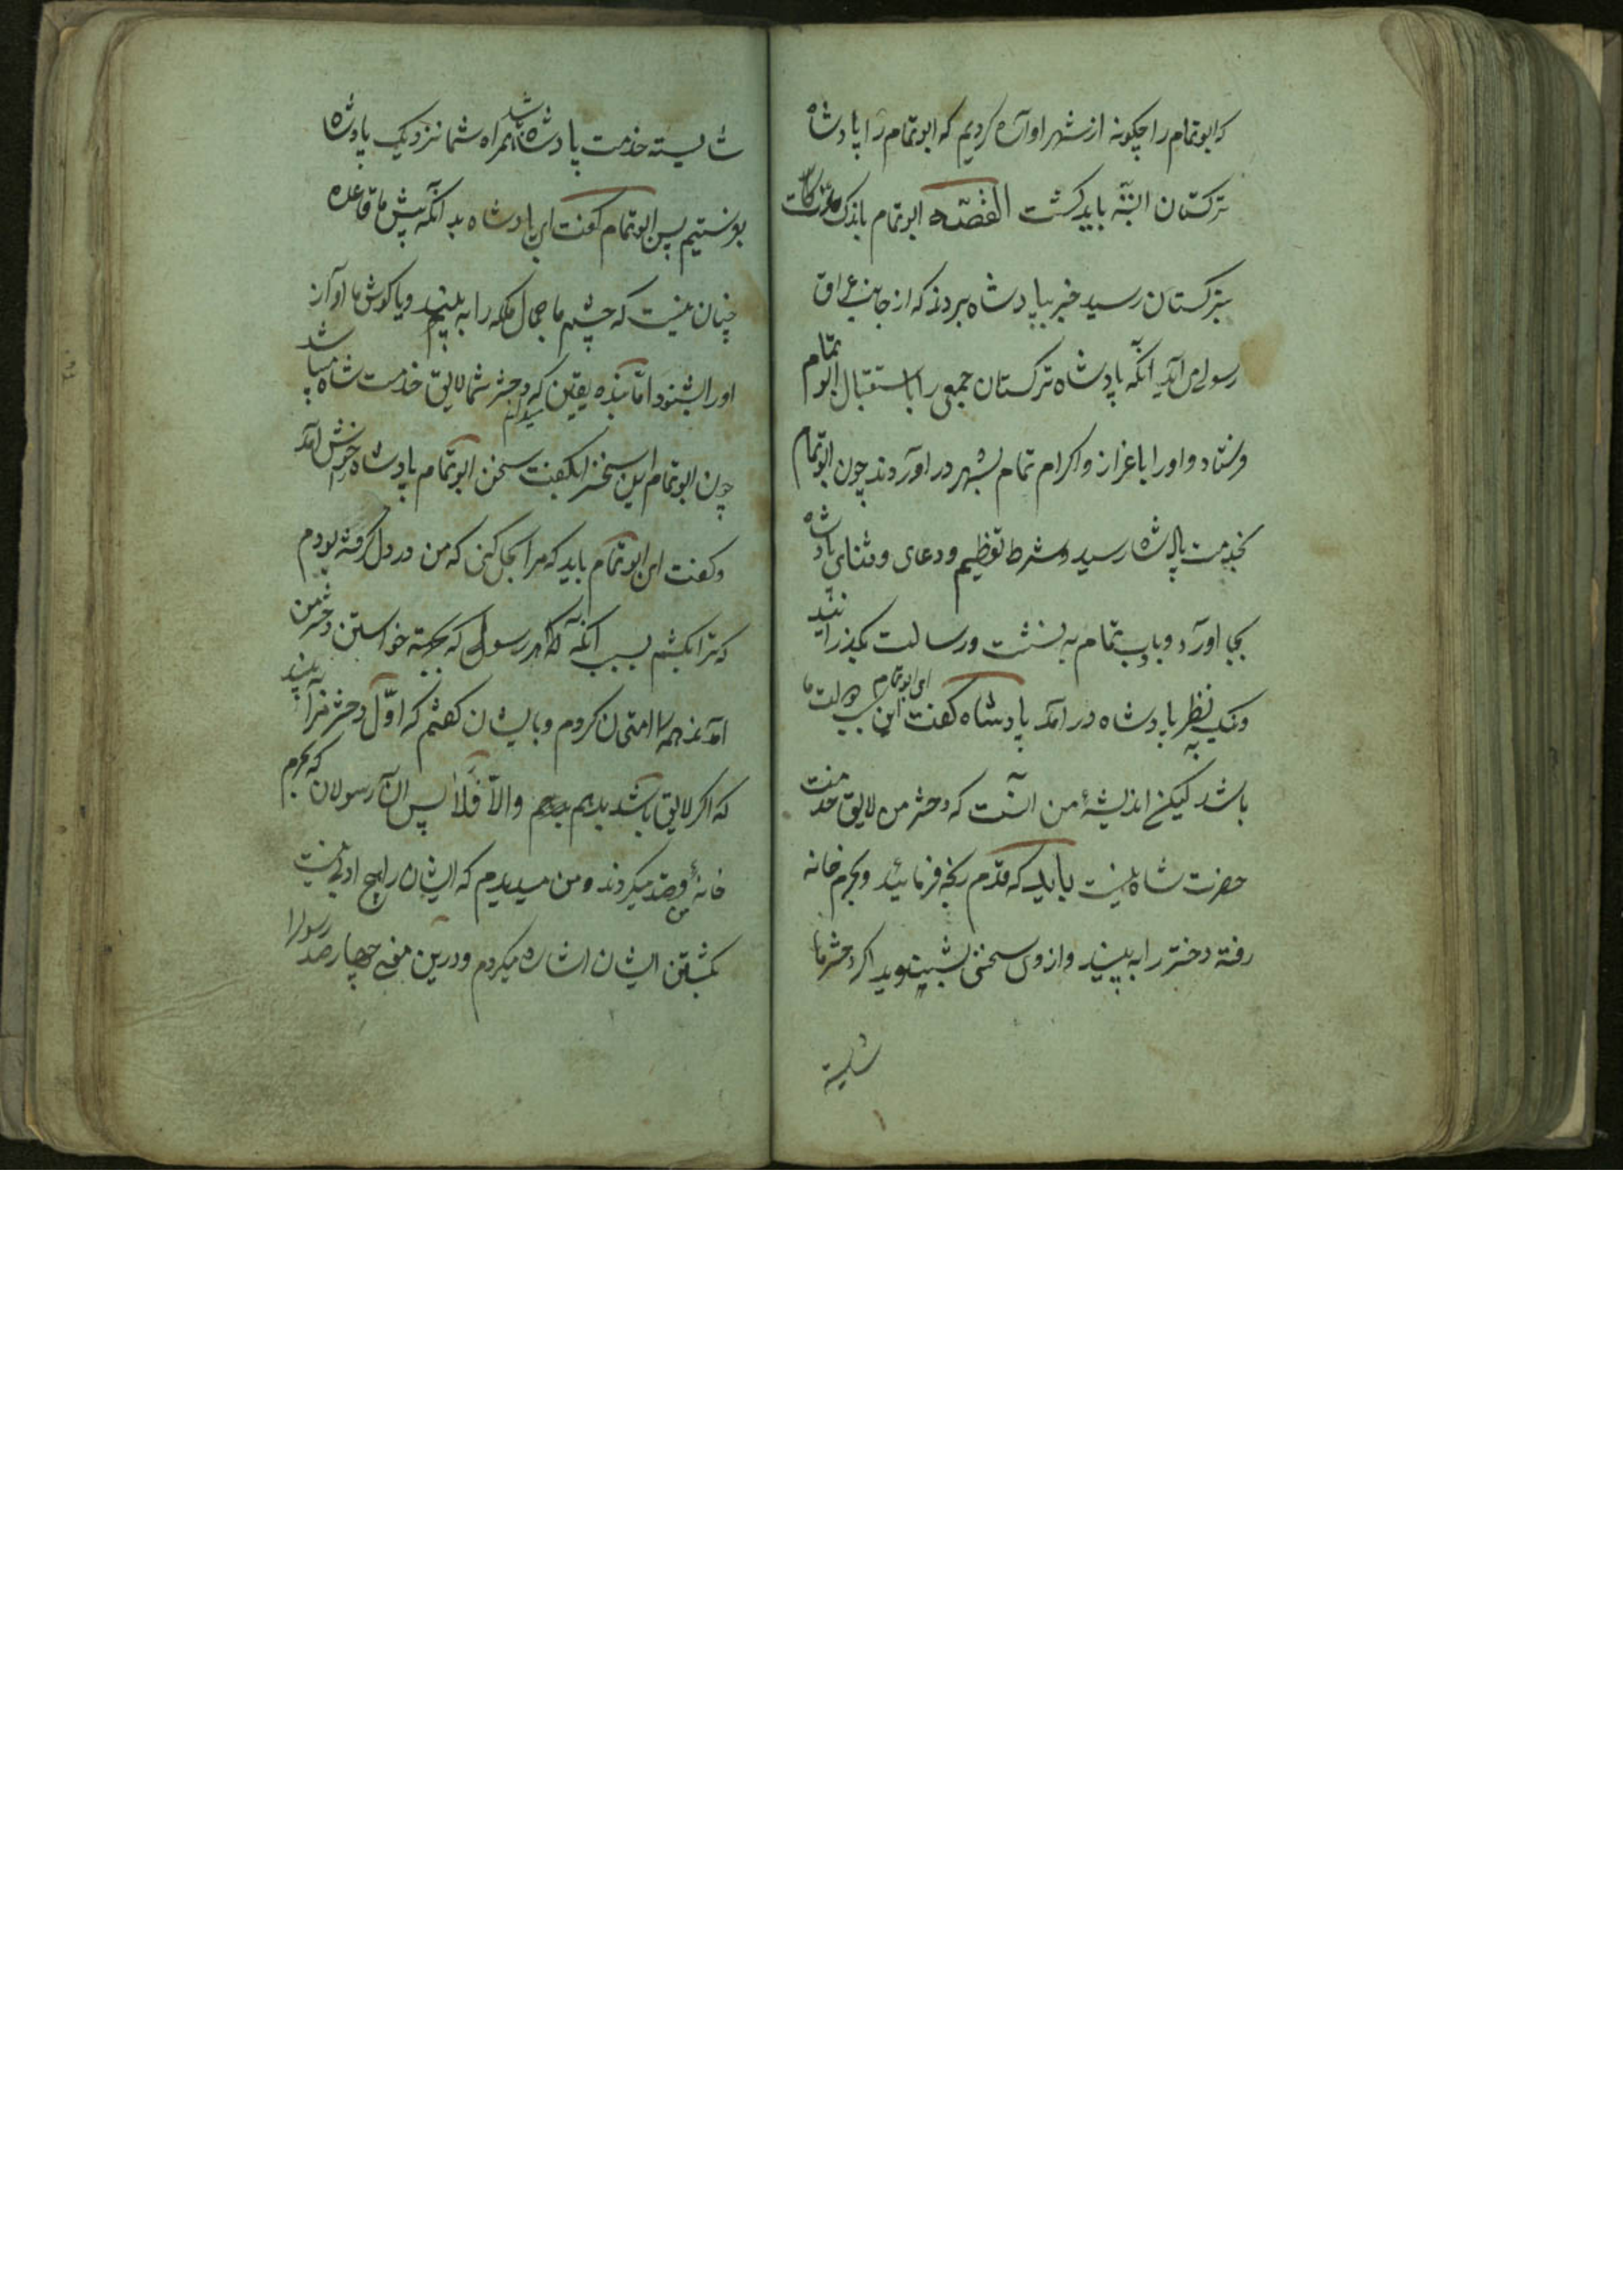 که ابوتمام را چکونه از شهر اواره کردیم که ابوتمام را پادشاه
ترکستان البته باید کشت القصه ابوتمام باندک
بترکستان رسید خبر بپادشاه بردند که از جانب عراق
رسولی می آید آنکه پادشاه ترکستان جمعی را باستقبال ابوتمام
فرستاد و اورا باعزاز و اکرام تمام بشهر در اوردند چون ابوتمام
بخدمت پادشاه رسید و شرط تعظیم و دعای و ثنای پادشاه
بجا اورد و باب تمام به نشست و رسالت بگذرانید
و نیک بنظر پادشاه در آمد پادشاه کفت ای ابوتمام این
باشد لیکن اندیشهٔ من انست که دختر من لایق خدمت
حضرت شاه نیست باید که قدم رنجه فرمائید و بحرم خانه
رفته دختر را به بینید و از وی سخن بشینوید اکر دختر ما
شایسته
شایسته خدمت پادشاه باشد همراه شما نزدیک پادشاه
بفرستیم پس ابوتمام کفت ای پادشاه بد آنکه پیش ما قاعده
چنان نیست که چشم ما جمال ملکه را به بینیم و یا کوش ما اواز
اورا بشنود اما بنده یقین میدانم که دختر شما لایق خدمت شاه میباشد
چون ابوتمام این سخنرا بکفت سخن ابوتمام پادشاه خوش آمد
و کفت ای ابوتمام باید که مرا بحل کنی که من در دل کرفته بودم
که ترا بکشم بسبب آنکه هر رسولی که بجهته خواستن دختر من
آمدند همه را امتحان کردم و بایشان کفتم که اول دختر مرا به بینید
که اکر لایق باشد بدهم والا فلا پس ان رسولان که بحرم
خانهٔ من قصد میکردند و من میدیدم که ایشان را هیچ ادبی نیست
بکشتن ایشان اشاره میکردم و درین معنی چهار صد رسولرا